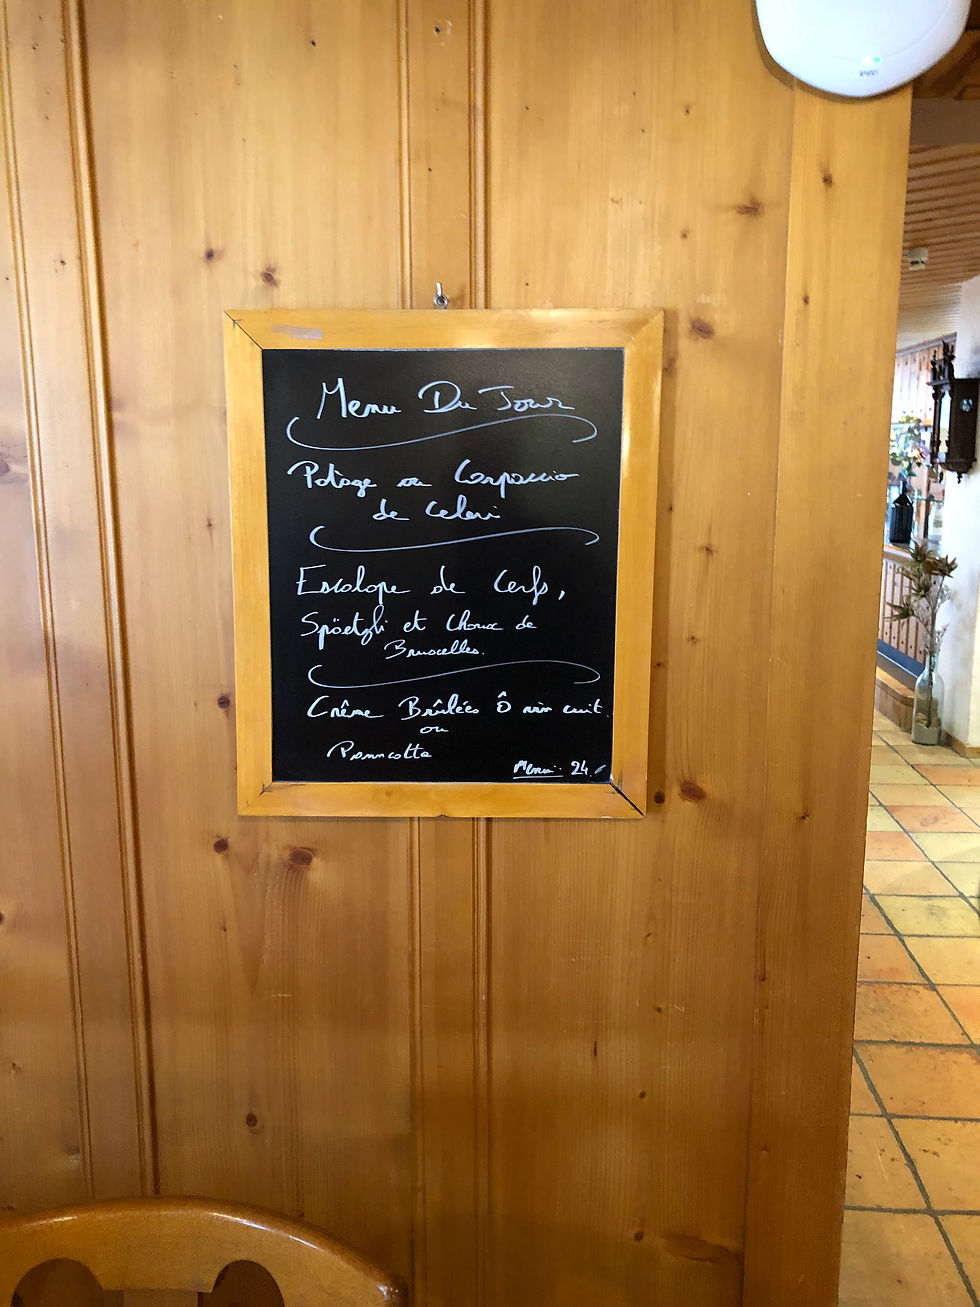 Menu Du Jour
Potage ou Carpaccio
de Celeri
Escalope de Cerfs,
Spöetzli et Choux de
Bruxelles.
Crème Brûlées Ô vin cuit.
ou
Panncotta
Menu: 24.-